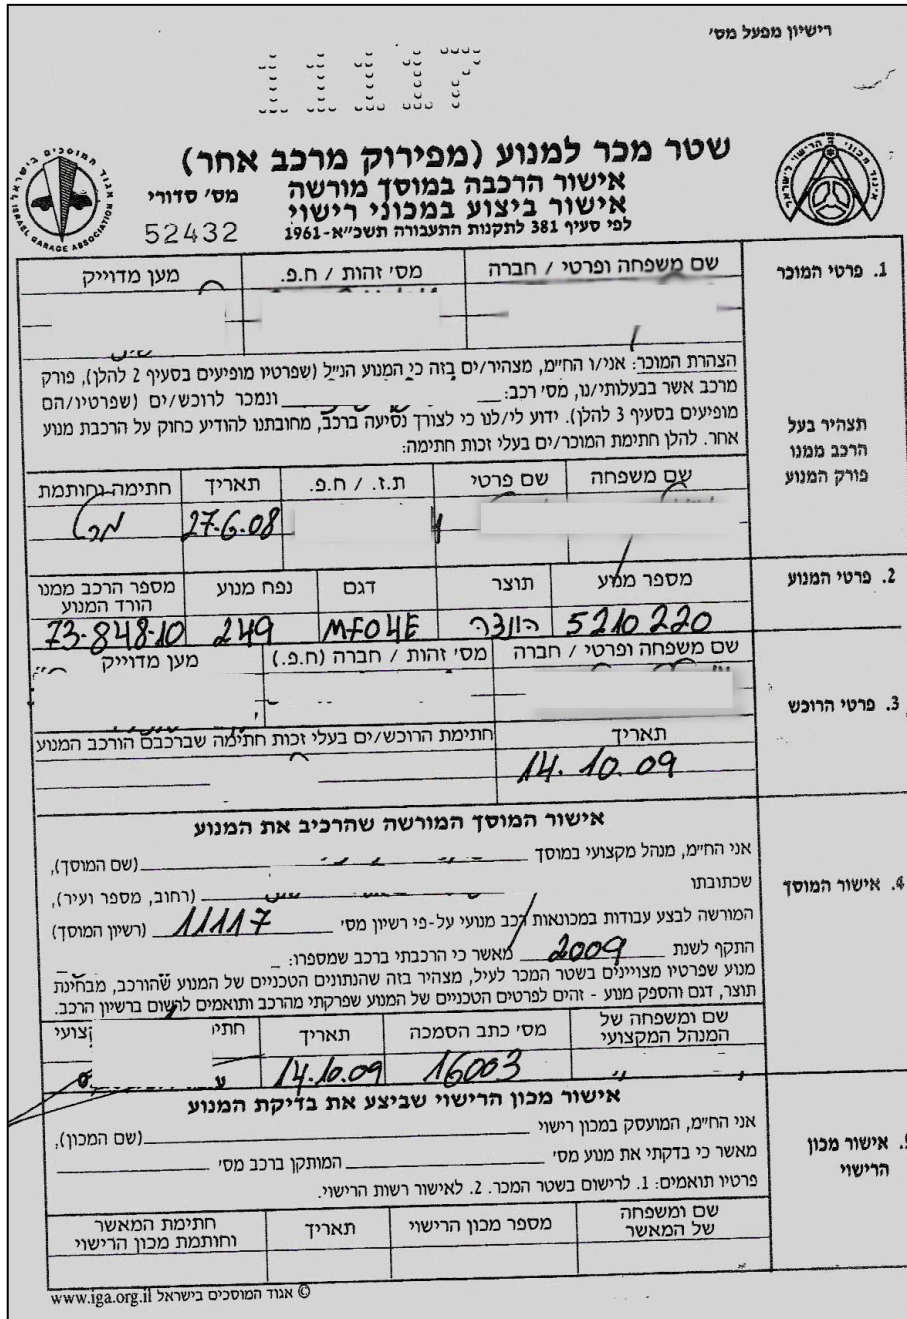 רישיון מפעל מס׳
11117
שטר מכר למנוע (מפירוק מרכב אחר)
אישור הרכבה במוסך מורשה
אישור ביצוע במכוני רישוי
לפי סעיף 381 לתקנות התעבורה תשכ״א-1961
מס׳ סדורי
52432
אגוד המוסכים בישראל
ISRAEL GARAGE ASSOCIATION
איגוד מכוני הרישוי לישראל
1. פרטי המוכר
שם משפחה ופרטי / חברה
מס׳ זהות / ח.פ.
מען מדוייק
תצהיר בעל
הרכב ממנו
פורק המנוע
הצהרת המוכר: אני/ו הח״מ, מצהיר/ים בזה כי המנוע הנ״ל (שפרטיו מופיעים בסעיף 2 להלן), פורק
מרכב אשר בבעלותי/נו, מס׳ רכב: ונמכר לרוכש/ים (שפרטיו/הם
מופיעים בסעיף 3 להלן). ידוע לי/לנו כי לצורך נסיעה ברכב, מחובתנו להודיע כחוק על הרכבת מנוע
אחר. להלן חתימת המוכר/ים בעלי זכות חתימה:
שם משפחה
שם פרטי
ת.ז. / ח.פ.
תאריך
חתימה וחותמת
27.6.08
2. פרטי המנוע
מספר מנוע
תוצר
דגם
נפח מנוע
מספר הרכב ממנו
הורד המנוע
5210220
הונדה
MF04E
249
73-848-10
3. פרטי הרוכש
שם משפחה ופרטי / חברה
מס׳ זהות / חברה (ח.פ.)
מען מדוייק
תאריך
חתימת הרוכש/ים בעלי זכות חתימה שברכבם הורכב המנוע
14.10.09
אישור המוסך המורשה שהרכיב את המנוע
4. אישור המוסך
אני הח״מ, מנהל מקצועי במוסך (שם המוסך),
שכתובתו (רחוב, מספר ועיר),
המורשה לבצע עבודות במכונאות רכב מנועי על-פי רשיון מס׳ 11117 (רשיון המוסך)
התקף לשנת 2009 מאשר כי הרכבתי ברכב שמספרו:
מנוע שפרטיו מצויינים בשטר המכר לעיל, מצהיר בזה שהנתונים הטכניים של המנוע שהורכב, מבחינת
תוצר, דגם והספק מנוע - זהים לפרטים הטכניים של המנוע שפרקתי מהרכב ותואמים לרשום ברשיון הרכב.
שם ומשפחה של
המנהל המקצועי
מס׳ כתב הסמכה
תאריך
16003
14.10.09
אישור מכון הרישוי שביצע את בדיקת המנוע
אישור מכון
הרישוי
אני הח״מ, המועסק במכון רישוי (שם המכון),
מאשר כי בדקתי את מנוע מס׳ המותקן ברכב מס׳
פרטיו תואמים: 1. לרישום בשטר המכר. 2. לאישור רשות הרישוי.
שם ומשפחה
של המאשר
מספר מכון הרישוי
תאריך
חתימת המאשר
וחותמת מכון הרישוי
© אגוד המוסכים בישראל www.iga.org.il